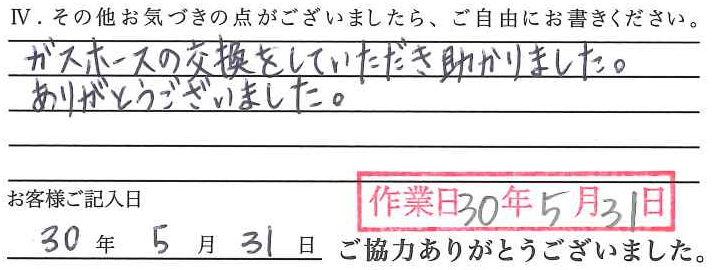 Ⅳ．その他お気づきの点がございましたら、ご自由にお書きください。
ガスホースの交換をしていただき助かりました。
ありがとうございました。
お客様ご記入日
作業日30年5月31日
30年 5月 31日 ご協力ありがとうございました。